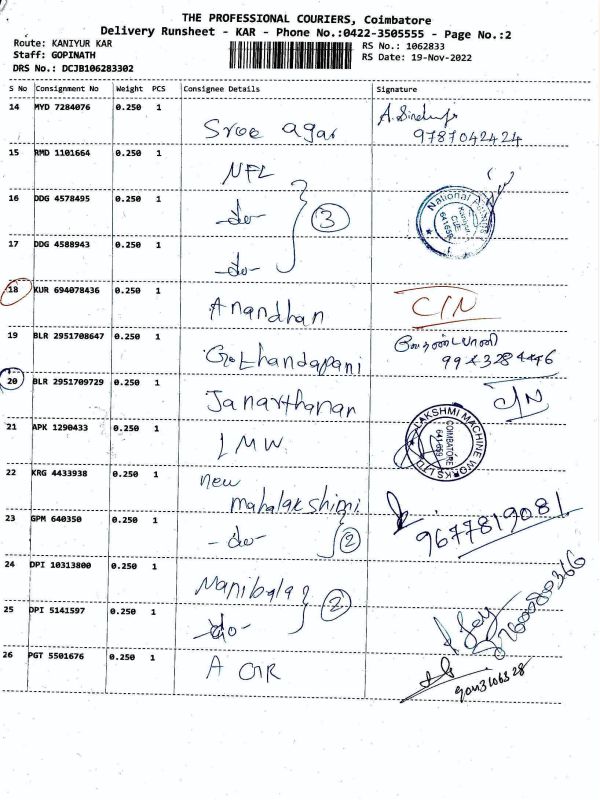 THE PROFESSIONAL COURIERS, Coimbatore
Delivery Runsheet - KAR - Phone No.:0422-3505555 - Page No.:2
Route: KANIYUR KAR
RS No.: 1062833
Staff: GOPINATH
RS Date: 19-Nov-2022
DRS No.: DCJB106283302
S No Consignment No Weight PCS Consignee Details Signature
14 MYD 7284076 0.250 1
Sree agar
9787042424
15 RMD 1101664 0.250 1
NFL
16 DDG 4578495 0.250 1
-do- 3
17 DDG 4588943 0.250 1
-do-
18 KUR 694078436 0.250 1
Anandhan C/N
19 BLR 2951708647 0.250 1
G. Thandapani
20 BLR 2951709729 0.250 1
Janarthanan C/N
21 APK 1290433 0.250 1
LMW
LAKSHMI MACHINE WORKS LTD
COIMBATORE
22 KRG 4433938 0.250 1
new
mahalakshimi
23 GPM 640350 0.250 1
-do- 2 9677819081
24 DPI 10313800 0.250 1
Manibala 2
25 DPI 5141597 0.250 1
-do-
26 PGT 5501676 0.250 1